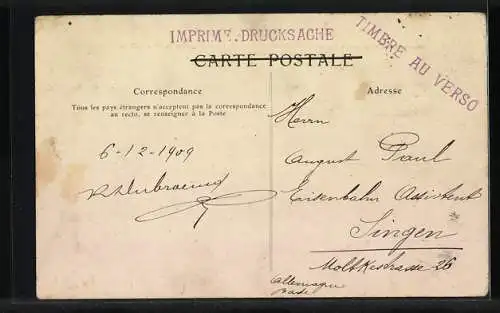 IMPRIMÉ-DRUCKSACHE
TIMBRE AU VERSO
CARTE POSTALE
Correspondance
Tous les pays étrangers n'acceptent pas la correspondance
au recto, se renseigner à la Poste
6-12-1909
Adresse
Herrn
August Paul
Eisenbahn Assistent
Singen
Moltkestrasse 26
Allemagne
Bade